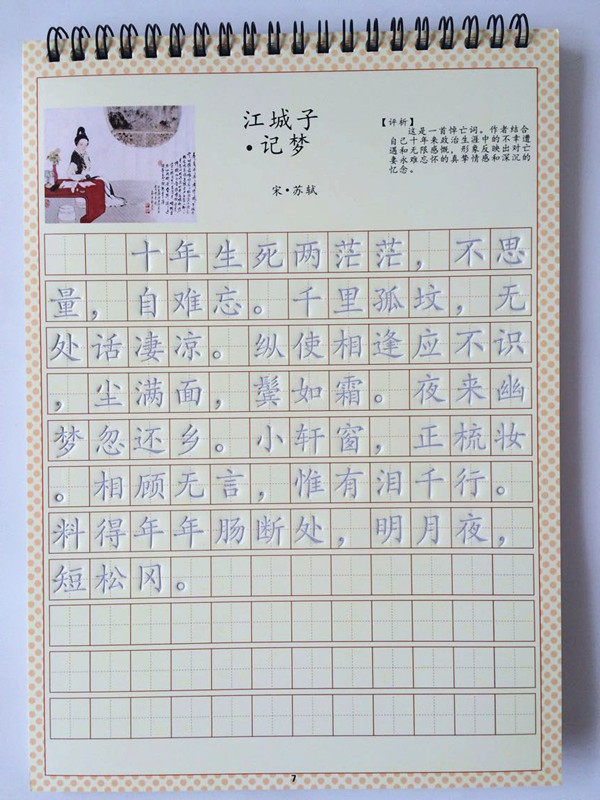 江城子
·记梦
宋·苏轼
【评析】
这是一首悼亡词。作者结合
自己十年来政治生涯中的不幸遭
遇和无限感慨，形象反映出对亡
妻永难忘怀的真挚情感和深沉的
忆念。
十年生死两茫茫，不思
量，自难忘。千里孤坟，无
处话凄凉。纵使相逢应不识
，尘满面，鬓如霜。夜来幽
梦忽还乡。小轩窗，正梳妆
。相顾无言，惟有泪千行。
料得年年肠断处，明月夜，
短松冈。
7